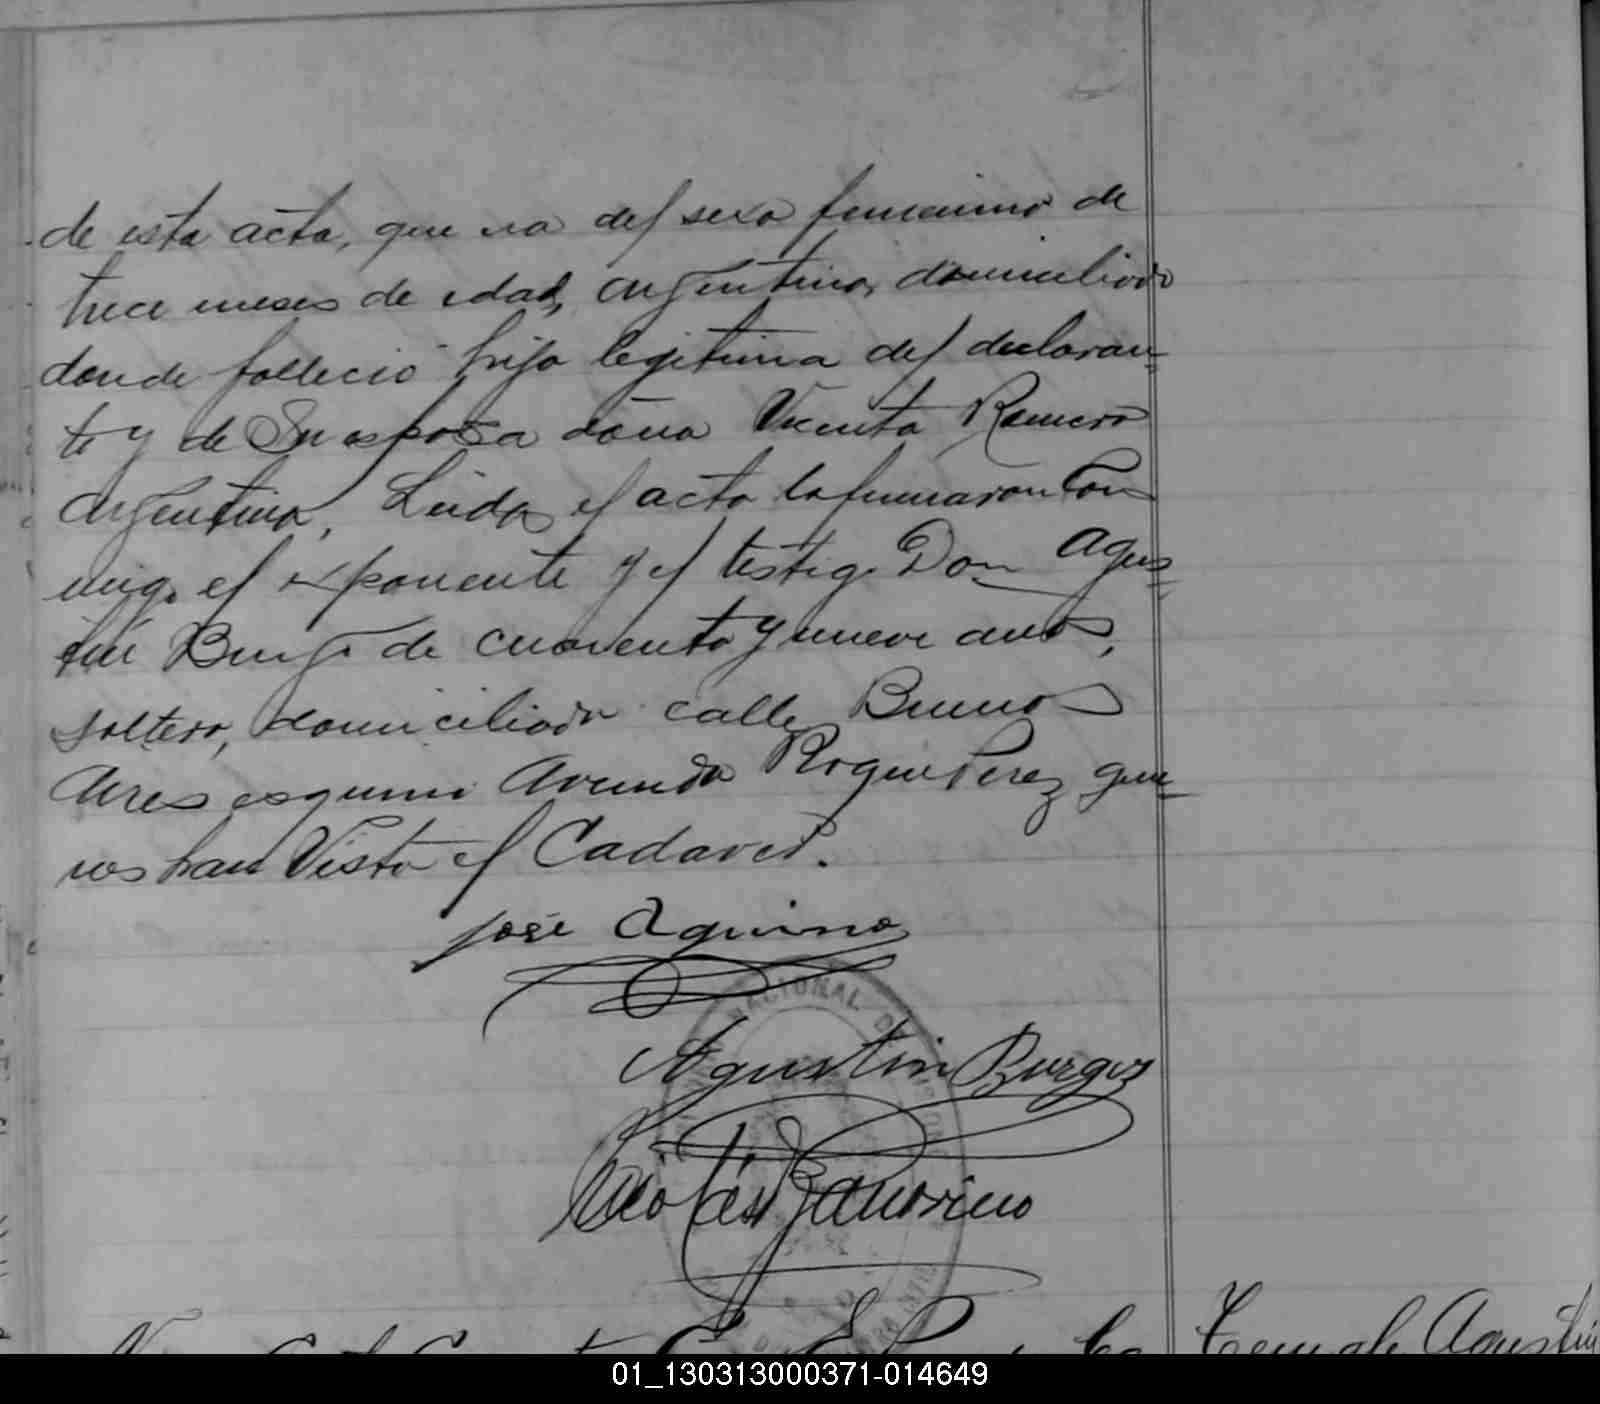 de esta acta, que era del sexo femenino de
trece meses de edad, argentina, domiciliada
donde fallecio hija legitima del declaran-
te y de Su esposa doña Vicenta Romero
argentina, Leida el acta la firmaron con
migo el exponente y el testigo Don Agus-
tin Burgo de cuarenta y nueve años,
soltero, domiciliado calle Buenos
Aires esquina Avenida Roque Perez quie-
nes han Visto el Cadaver.
José Aquino
NACIONAL DE
Agustin Burgoz
Nicolás
Agustin
01_130313000371-014649